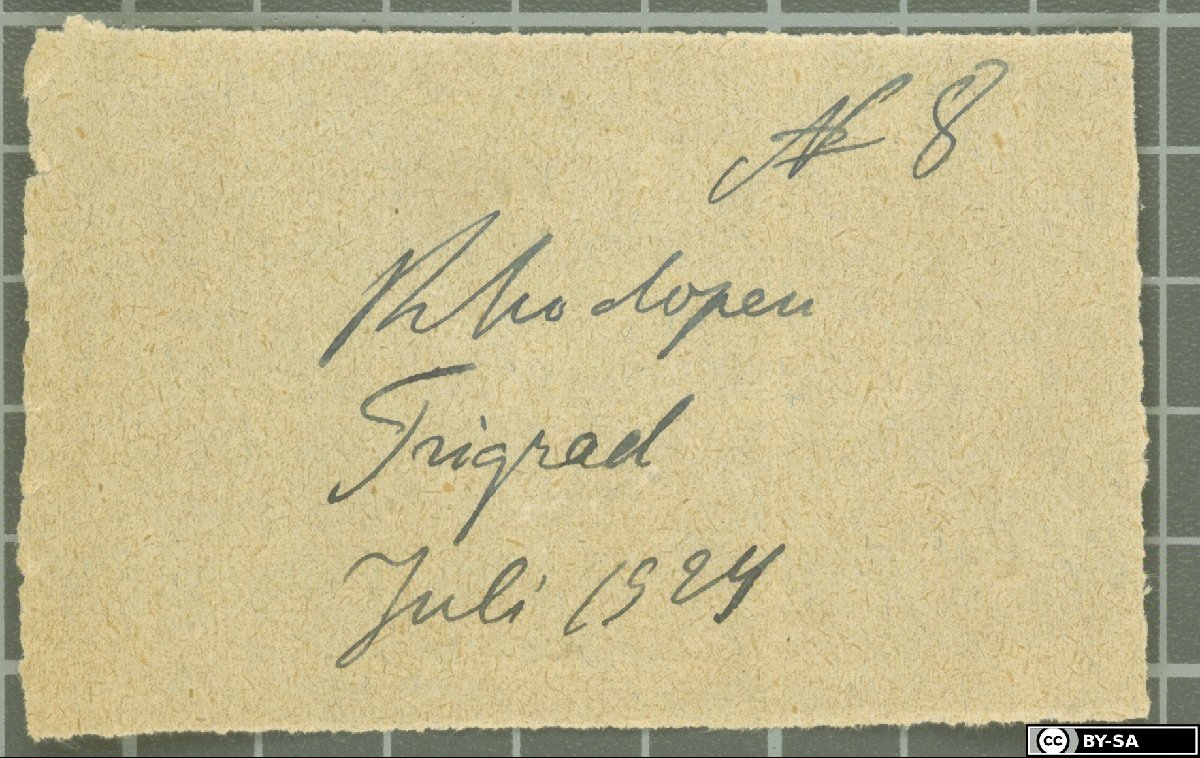 № 8
Rhodopen
Trigrad
Juli 1924
cc BY-SA